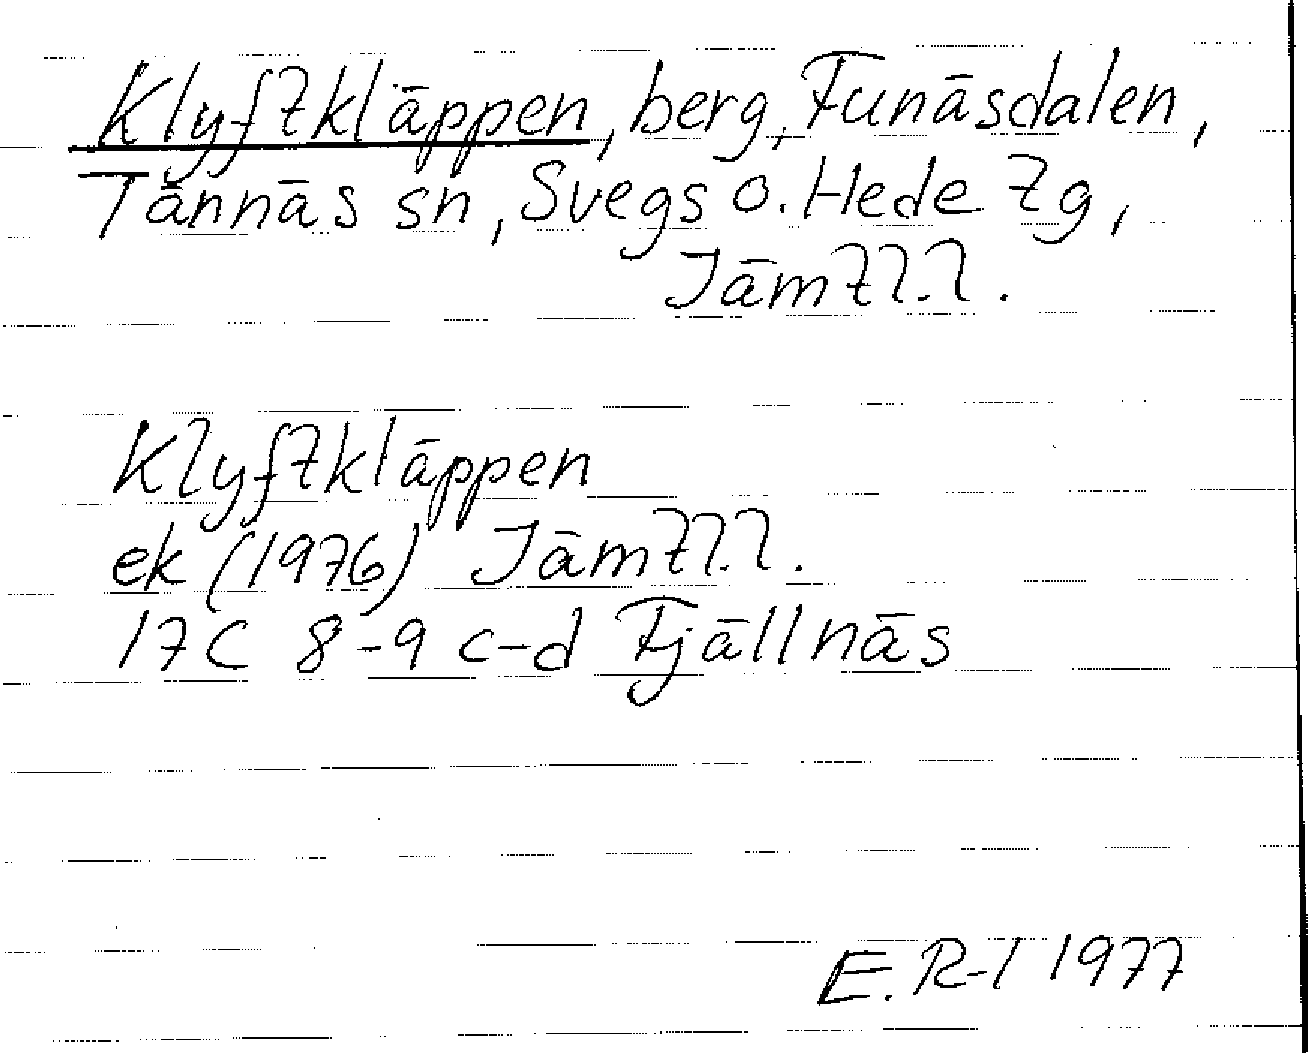 Klyftkläppen, berg, Funäsdalen,
Tännäs sn, Svegs o. Hede tg,
Jämtl.l.
Klyftkläppen
ek (1976) Jämtl.l.
17C 8-9 c-d Fjällnäs
E. R-l 1977